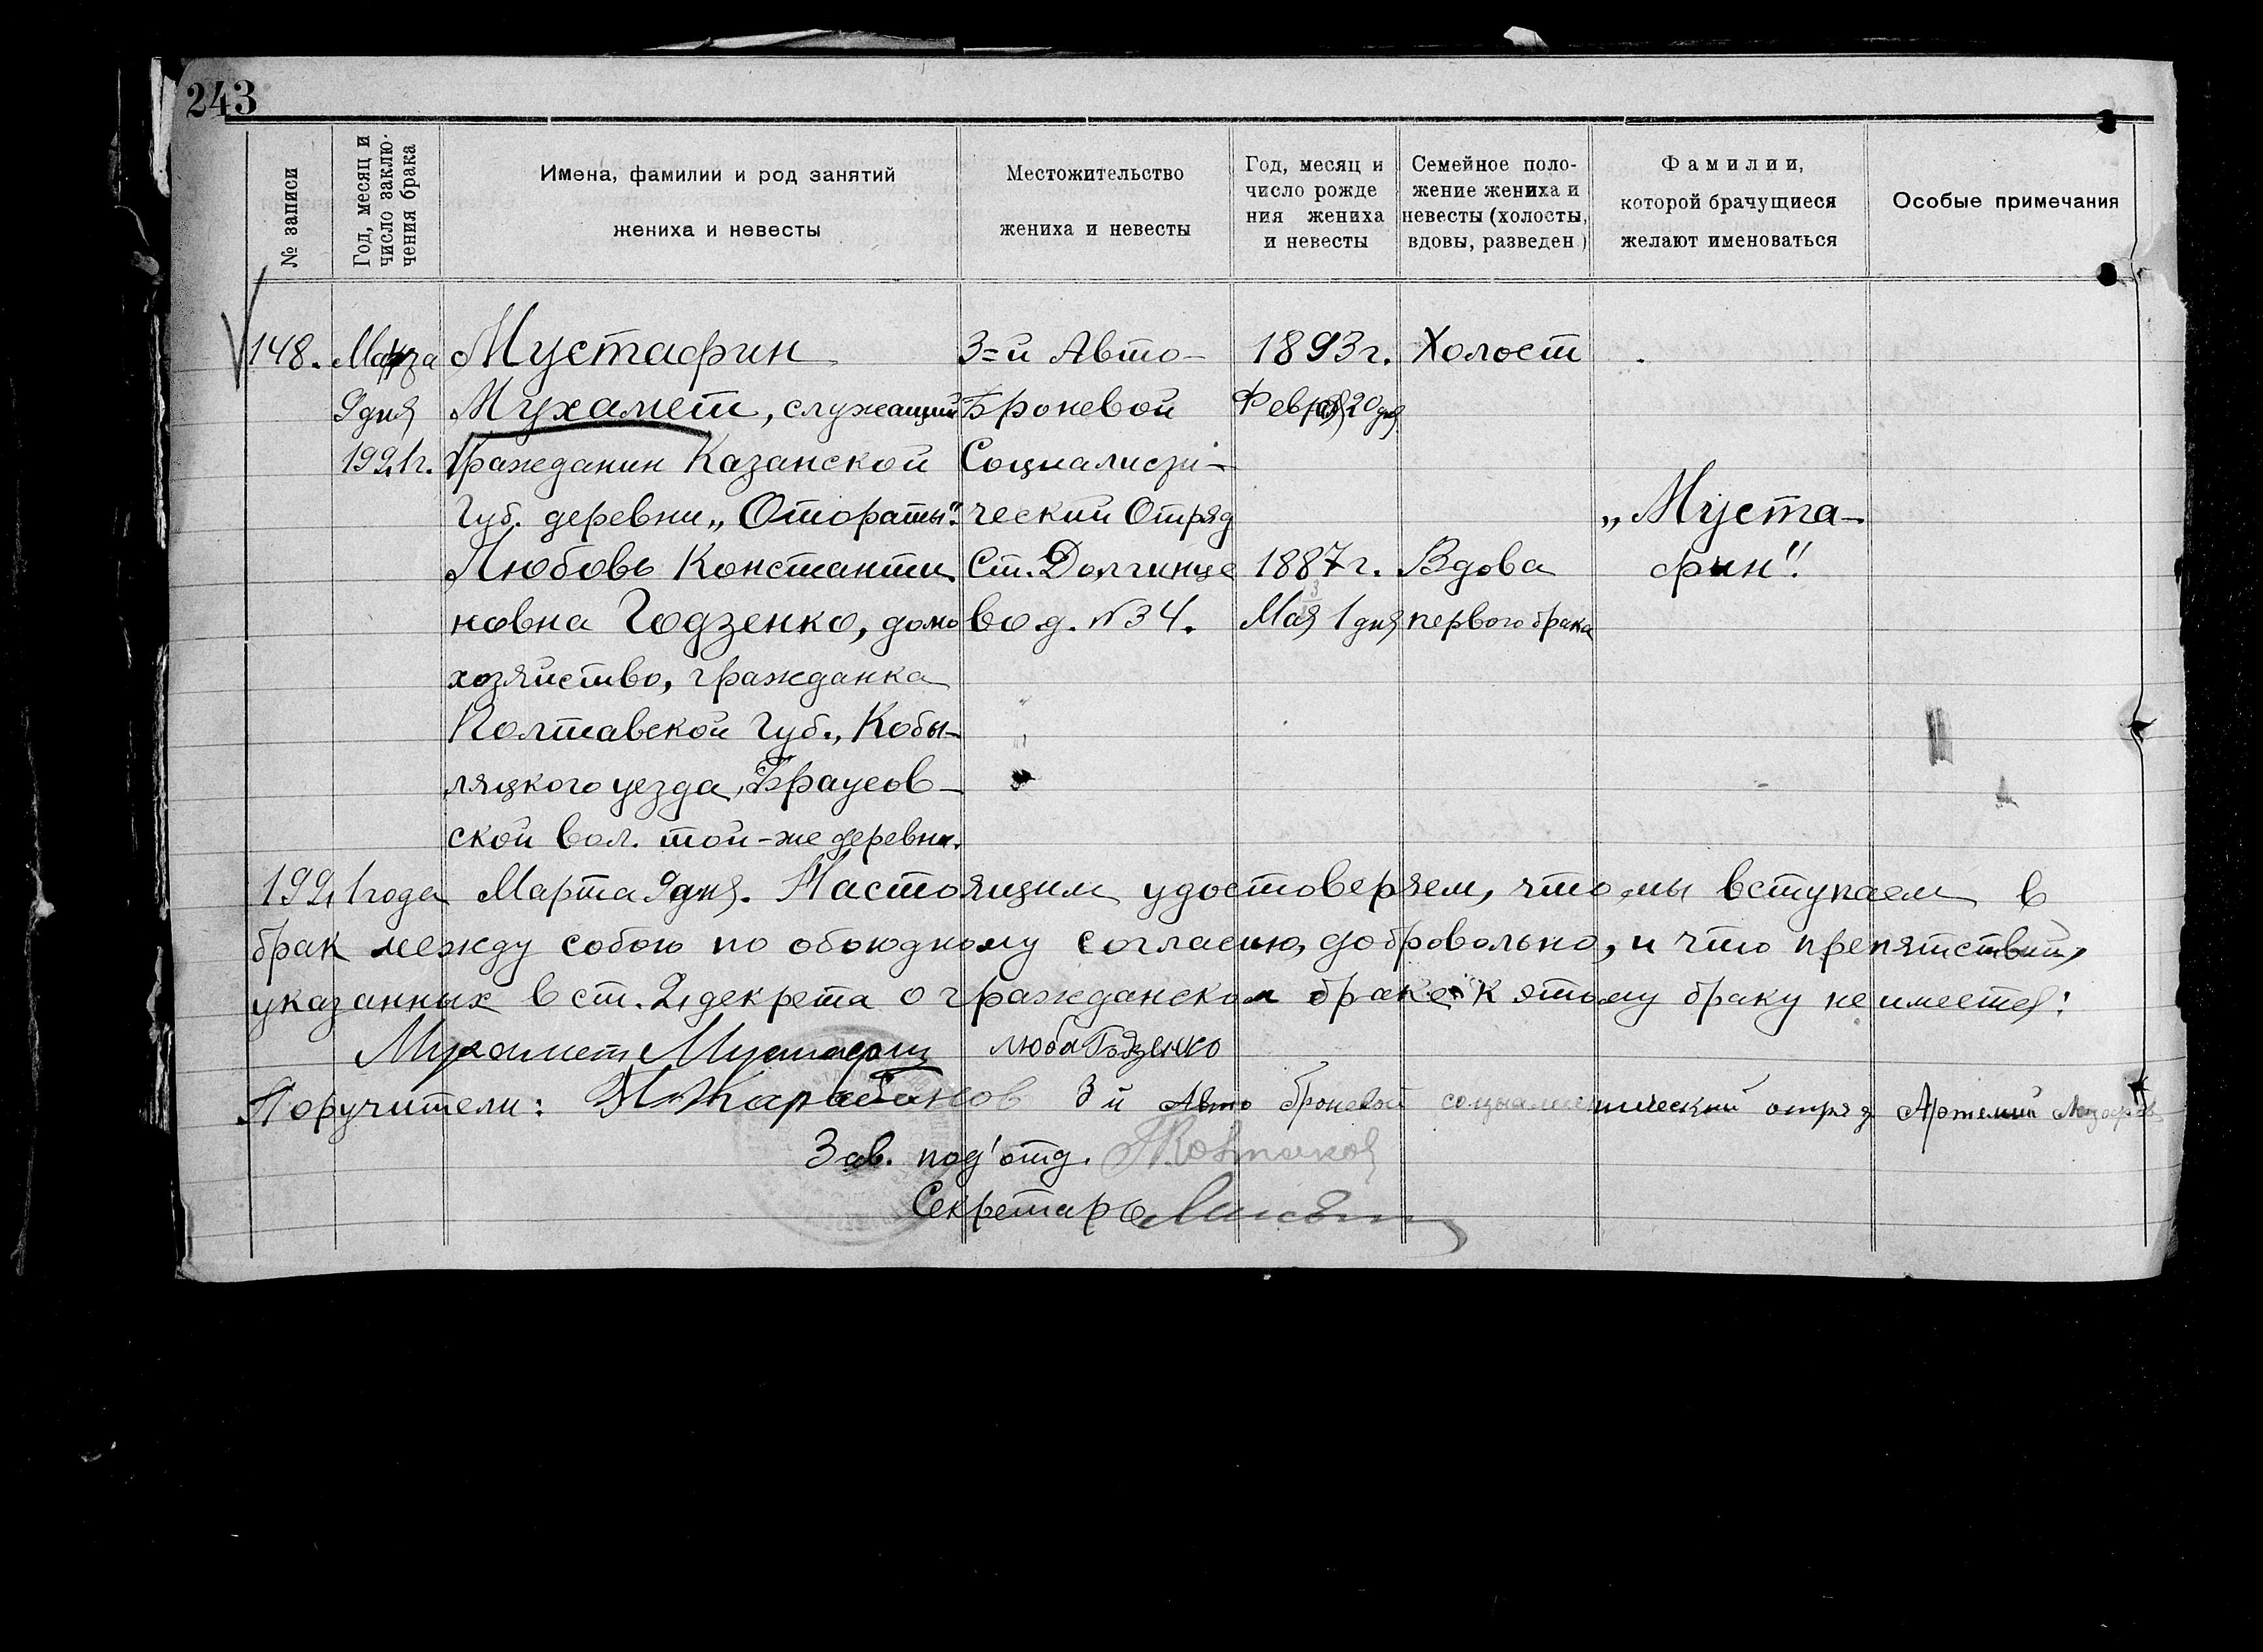 243
№ записи
Год, месяц и
число заклю-
чения брака
Имена, фамилии и род занятий
жениха и невесты
Местожительство
жениха и невесты
Год, месяц и
число рожде
ния жениха
и невесты
Семейное поло-
жение жениха и
невесты (холосты,
вдовы, разведен.)
Фамилии,
которой брачущиеся
желают именоваться
Особые примечания
148. Марта Мустафин 3=й Авто- 1893 г. Холост
9 дня Мухамет, служащий Броневой Февраля 20 дня
1921 г. Гражданин Казанской Социалисти-
Губ. деревни „Отораты". ческий Отряд „Муста-
Любовь Константи Ст. Долгинце 1887 г. Вдова фин".
новна Годзенко, домо во д. №34. Мая 1 дня первого брака
хозяйство, гражданка
Полтавской Губ., Кобы-
ляцкого уезда, Браусов-
ской вол. той-же деревни.
1921 года Марта 9 дня. Настоящим удостоверяем, что мы вступаем в
брак между собою по обоюдному согласию, добровольно, и что препятствий,
указанных в ст. 2, декрета о гражданском браке к этому браку не имеется:
Мухамет Мустафин Люба Годзенко
Поручители: Карабанов 3й Авто броневой социалистический отряд Артемий
Зав. под'отд.
Секретарь